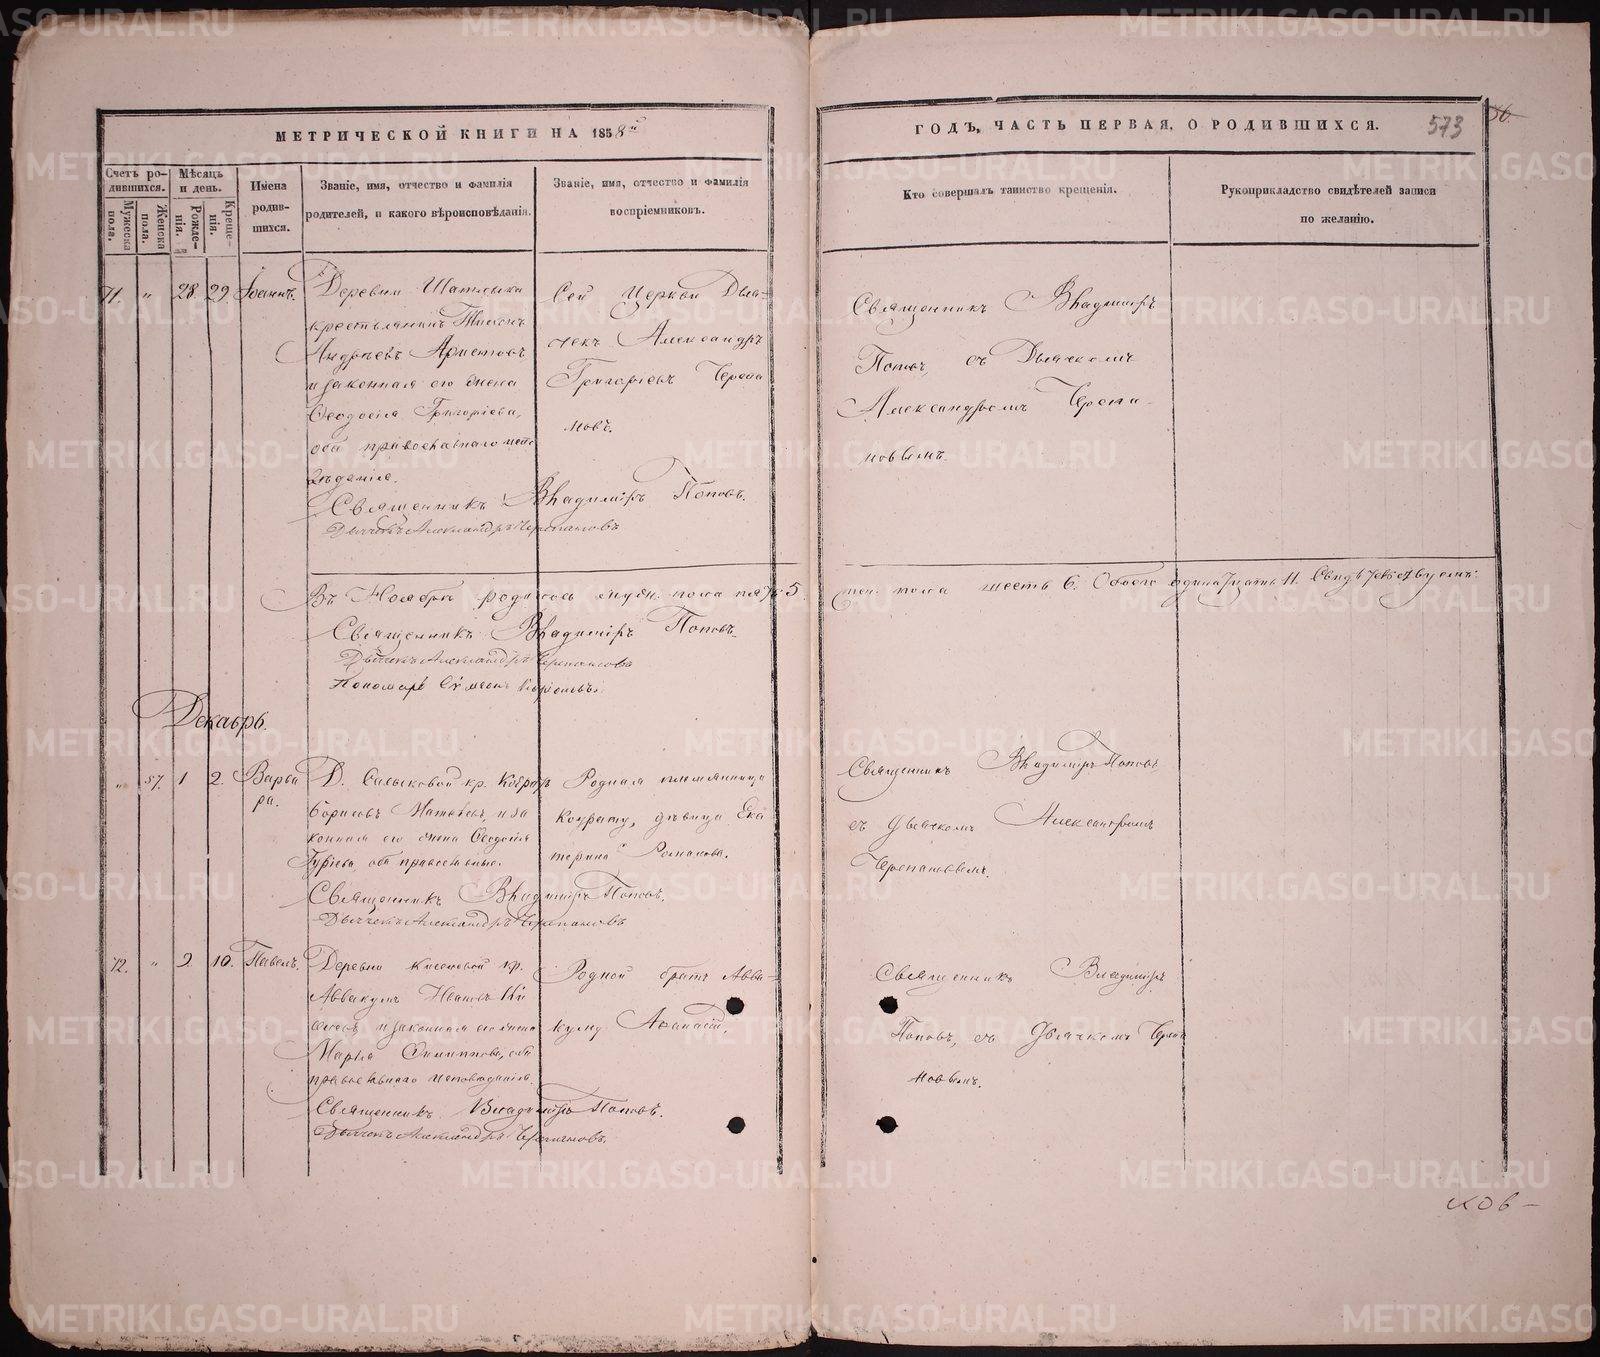 МЕТРИЧЕСКОЙ КНИГИ НА 1858й
ГОДЪ, ЧАСТЬ ПЕРВАЯ, О РОДИВШИХСЯ.
573
Счетъ ро-
дившихся.
Мужеска пола.
Женска пола.
Мѣсяцъ
и день.
Рожде-
нія.
Креще-
нія.
Имена
родив-
шихся.
Званіе, имя, отчество и фамилія
родителей, и какого вѣроисповѣданія.
Званіе, имя, отчество и фамилія
воспріемниковъ.
Кто совершалъ таинство крещенія.
Рукоприкладство свидѣтелей записи
по желанію.
71. " 28. 29. Іоаннъ.
Деревни
крестьянинъ Тихонъ
Андреевъ Аристовъ
и законная его жена
Ѳеодосія Григоріева,
оба православнаго испо
вѣданія.
Священникъ Владиміръ Поповъ.
Дьячекъ Александръ Черепановъ
Сей Церкви Дья-
чекъ Александръ
Григоріевъ Черепа
новъ.
Священникъ Владиміръ
Поповъ, съ Дьячкомъ
Александромъ Черепа-
новымъ.
Въ Ноябрѣ родилось муж. пола пять 5.
жен. пола шесть 6. Обоего одинадцать 11. Свидѣтельствуемъ:
Священникъ Владиміръ Поповъ.
Дьячекъ Александръ Черепановъ
Пономарь
Декабрь.
" 57. 1 2. Варва
ра.
Д. кр.
Борисовъ Матвѣевъ, и за
конная его жена Ѳеодосія
Гурьева, оба православные.
Священникъ Владиміръ Поповъ.
Дьячекъ Александръ Черепановъ
Родная племянница
дѣвица Ека
терина Романова.
Священникъ Владиміръ Поповъ
съ Дьячкомъ Александромъ
Черепановымъ.
72. " 9. 10. Павелъ.
Деревни кр.
Аввакумъ Ивановъ
и законная его жена
Марья Филиппова, оба
православнаго исповѣданія.
Священникъ Владиміръ Поповъ.
Дьячекъ Александръ Черепановъ.
Родной братъ Авва-
куму Аѳанасій.
Священникъ Владиміръ
Поповъ, съ Дьячкомъ Черепа
новымъ.
ков-
METRIKI.GASO-URAL.RU